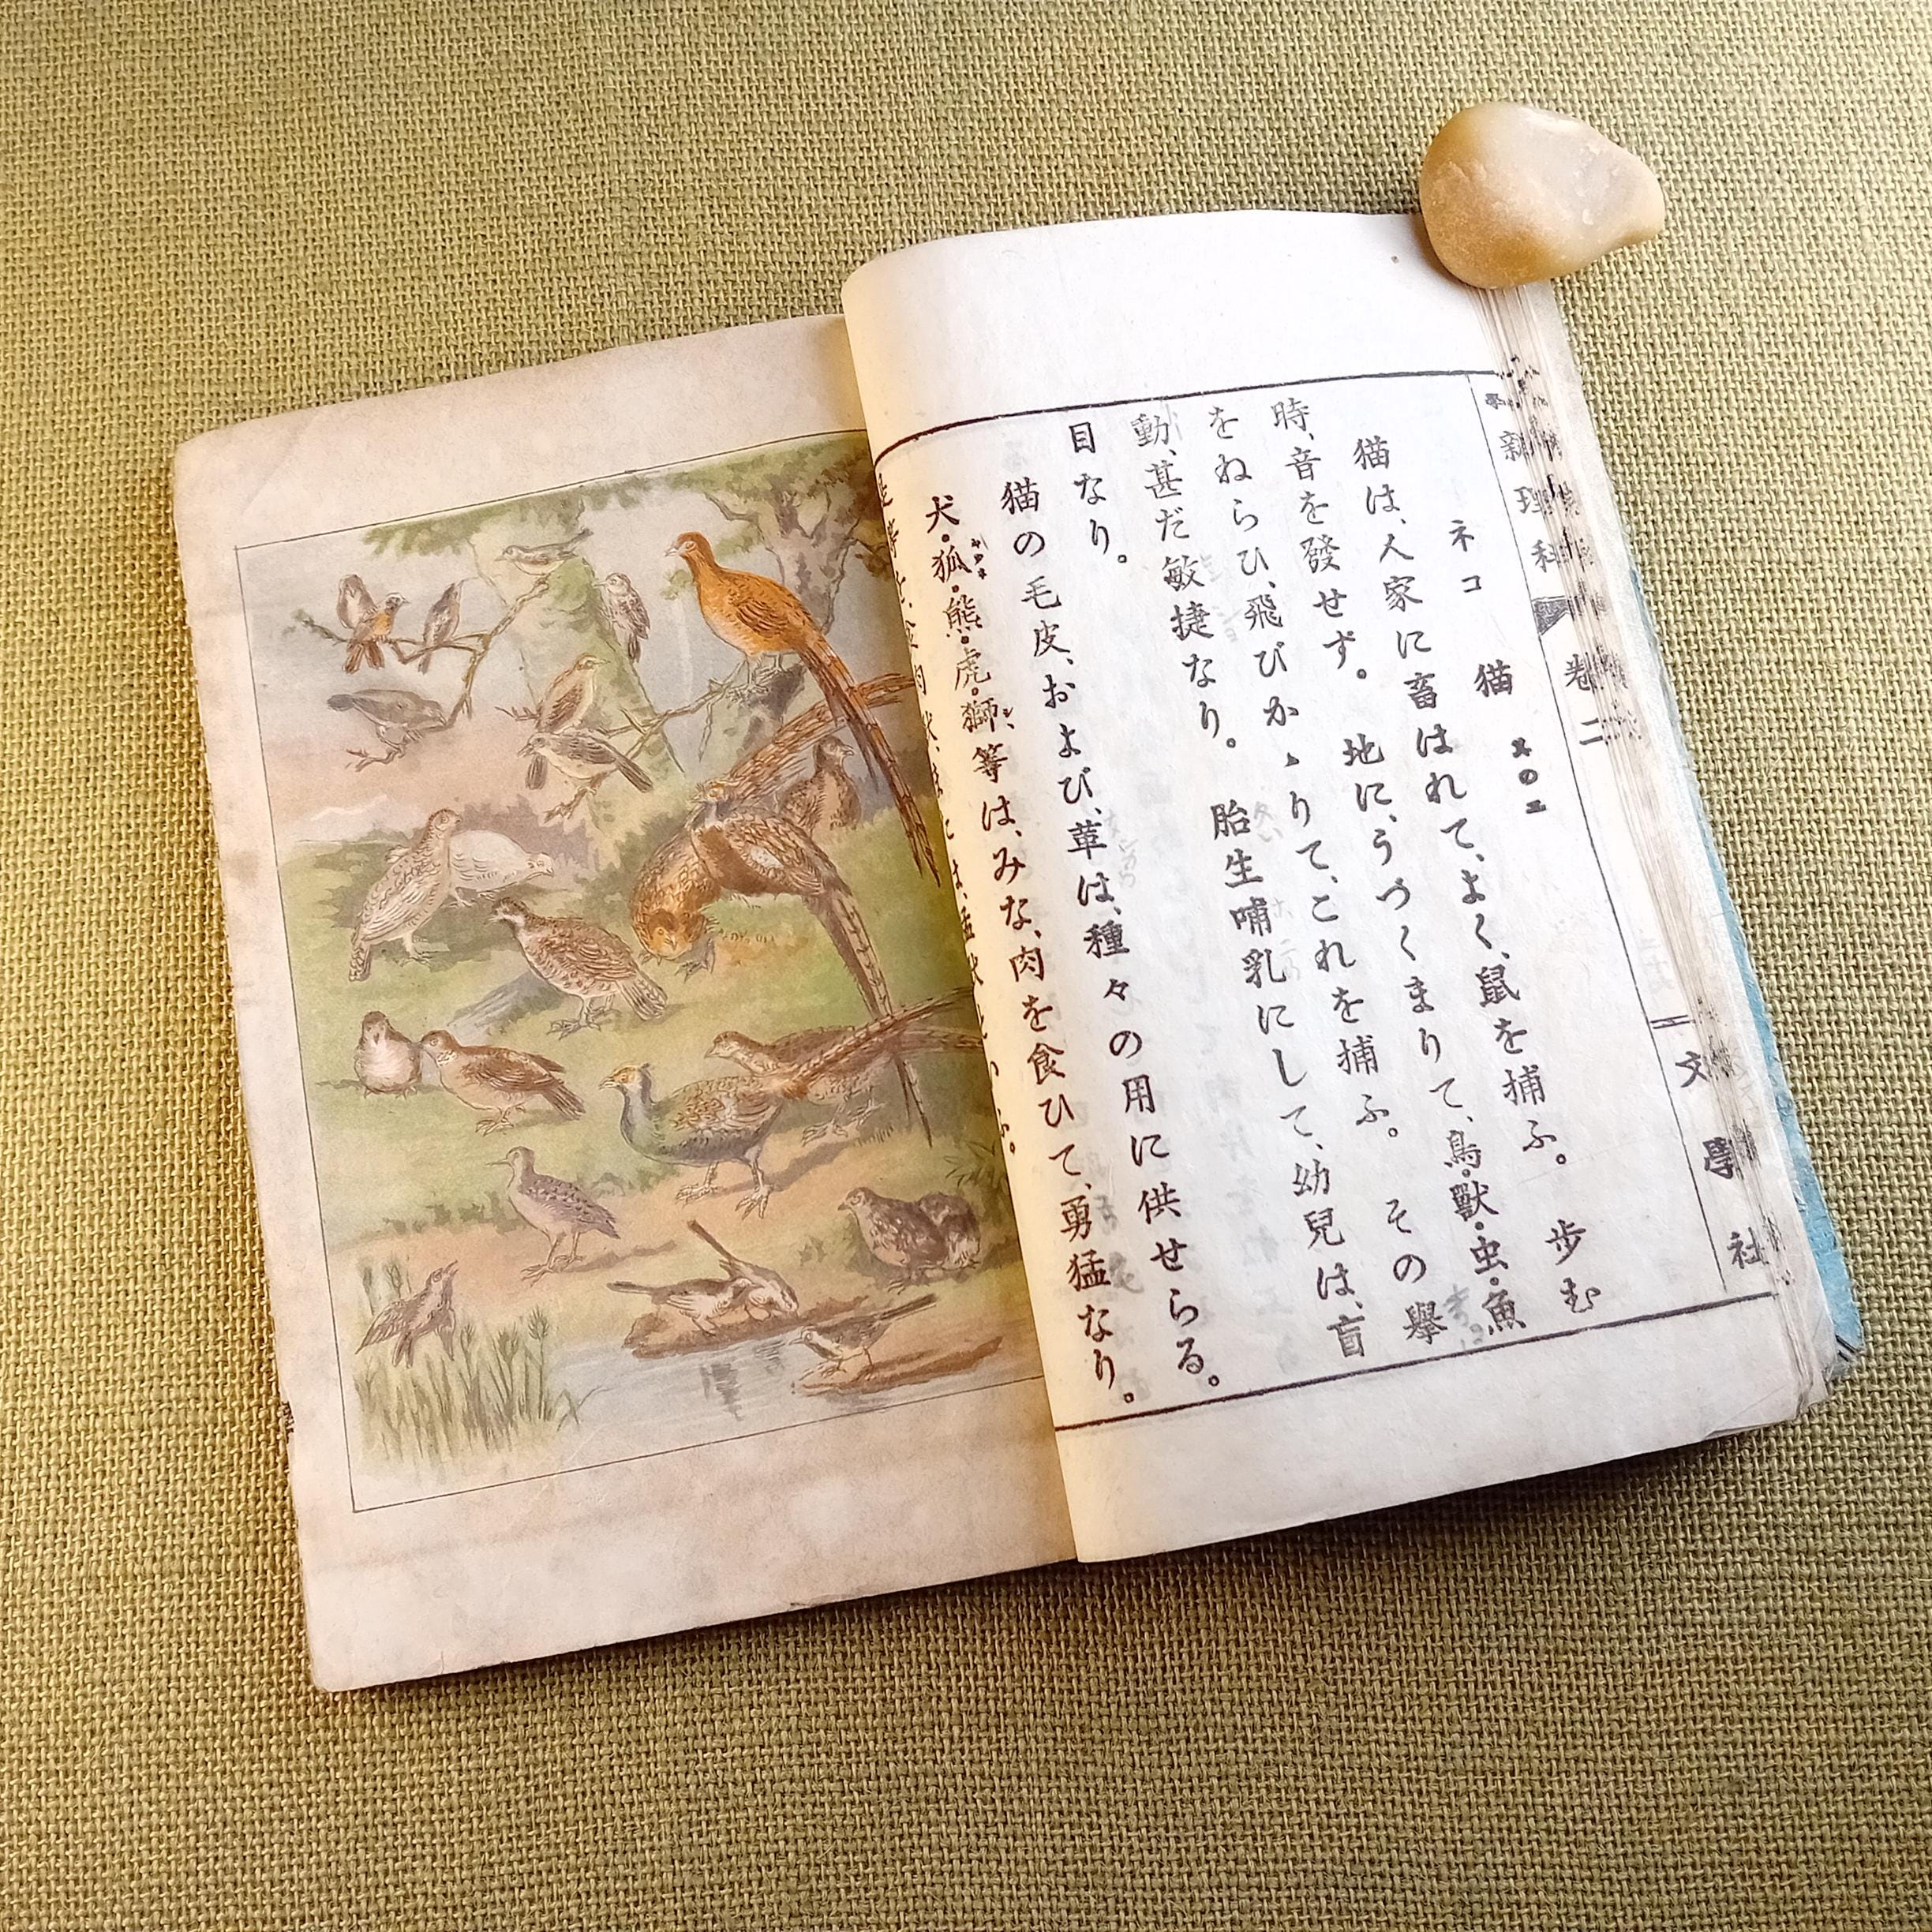 新理科 卷二 文學社
ネコ 猫 其の二
猫は、人家に畜はれて、よく、鼠を捕ふ。 歩む
時、音を發せず。 地に、うづくまりて、鳥・獸・虫・魚
をねらひ、飛びかゝりて、これを捕ふ。 その擧
動、甚だ敏捷なり。 胎生哺乳にして、幼兒は、盲
目なり。
猫の毛皮、および、革は、種々の用に供せらる。
犬・狐・熊・虎・獅等は、みな、肉を食ひて、勇猛なり。